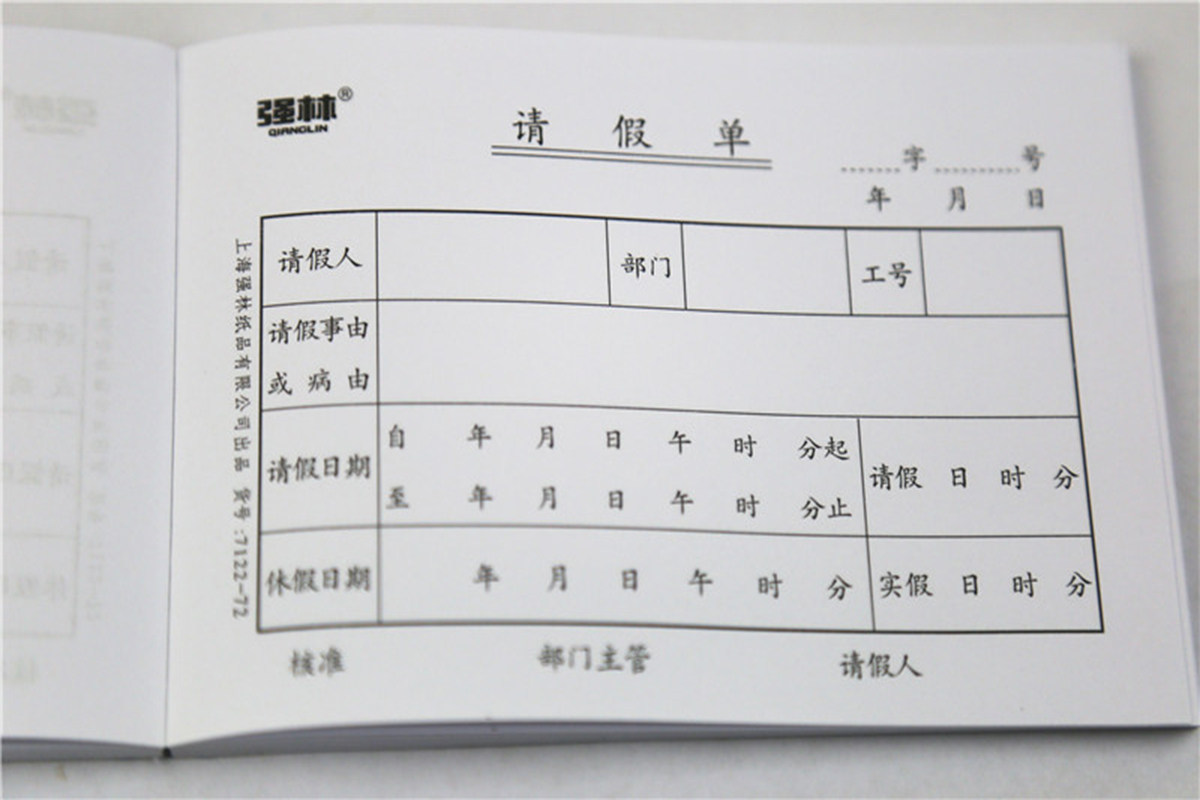 强林®
QIANGLIN
请 假 单
......字.........号
年 月 日
请假人 部门 工号
请假事由
或 病 由
请假日期
自 年 月 日 午 时 分起
至 年 月 日 午 时 分止
请假 日 时 分
休假日期 年 月 日 午 时 分
实假 日 时 分
核准 部门主管 请假人
上海强林纸品有限公司出品 货号:7122-72